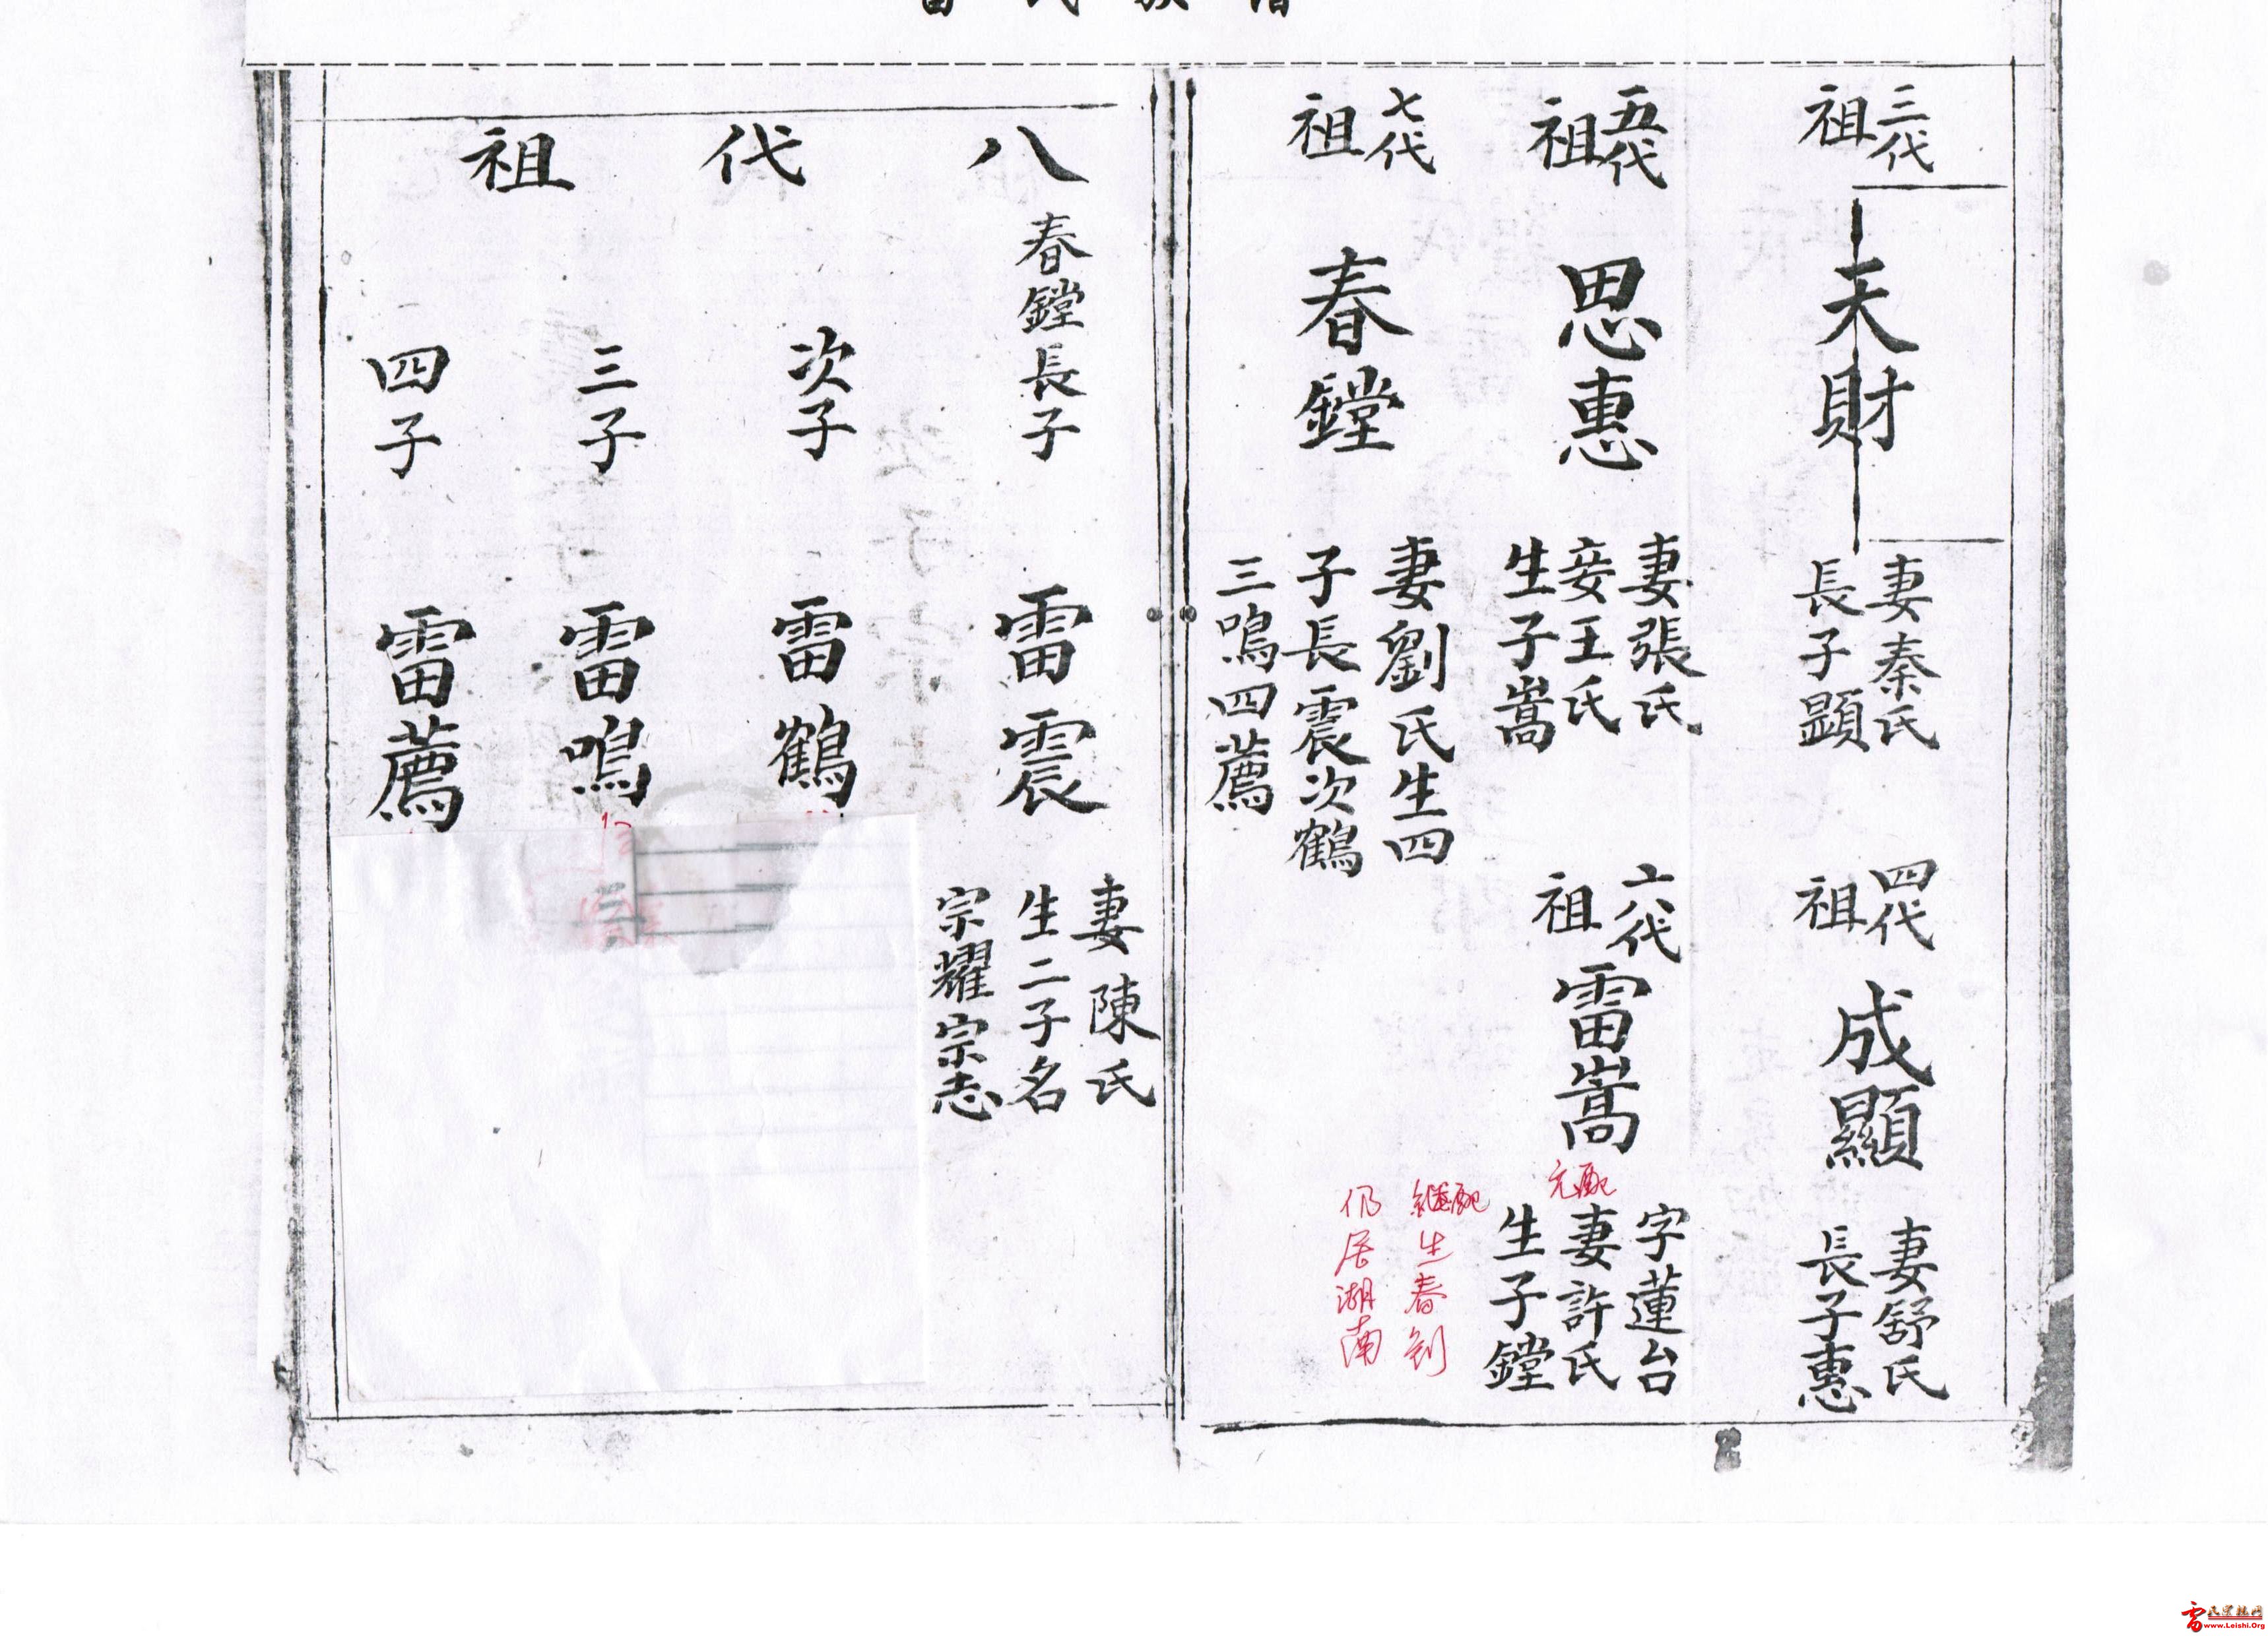 雷氏族譜
三代祖
天財
妻秦氏
長子顕
四代祖
成顯
妻舒氏
長子惠
五代祖
思惠
妻張氏
妾王氏
生子嵩
六代祖
雷嵩
字蓮台
元配
妻許氏
生子鏜
継配生春釗
仍居湖南
七代祖
春鏜
妻劉氏生四
子長震次鶴
三鳴四薦
八代祖
春鏜長子
雷震
妻陳氏
生二子名
宗耀宗志
次子
雷鶴
三子
雷鳴
四子
雷薦
www.Leishi.Org